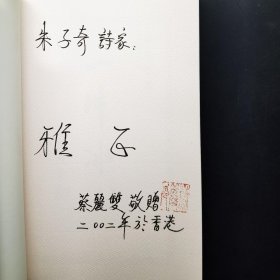 朱子奇詩家：
雅正
蔡麗雙敬贈
二〇〇二年於香港